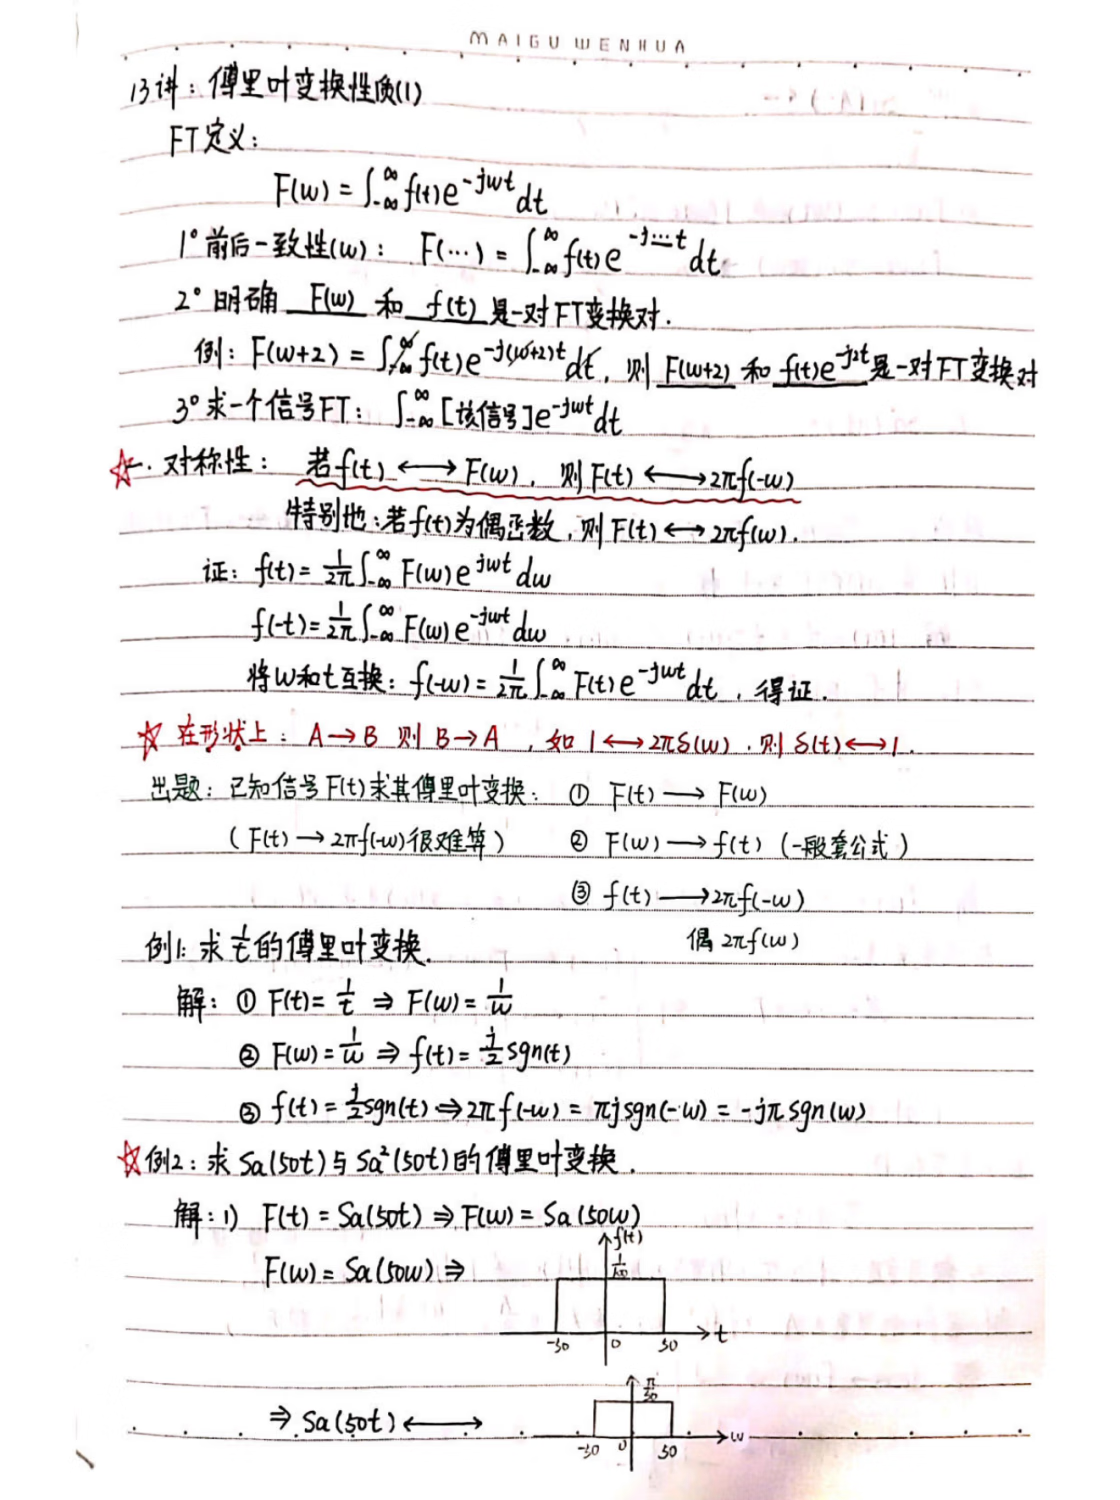 MAIGU WENHUA
13讲：傅里叶变换性质(1)
FT定义：
F(w) = ∫_{-∞}^{∞} f(t)e^{-jwt}dt
1° 前后一致性(w)： F(…) = ∫_{-∞}^{∞} f(t)e^{-j…t}dt
2° 明确 F(w) 和 f(t) 是一对FT变换对.
例：F(w+2) = ∫_{-∞}^{∞} f(t)e^{-j(w+2)t}dt，则 F(w+2) 和 f(t)e^{-j2t}是一对FT变换对
3° 求一个信号FT： ∫_{-∞}^{∞} [该信号]e^{-jwt}dt
☆一. 对称性： 若f(t) ⟷ F(w)，则F(t) ⟷ 2πf(-w)
特别地：若f(t)为偶函数，则F(t) ⟷ 2πf(w).
证：f(t) = 1/2π ∫_{-∞}^{∞} F(w)e^{jwt}dw
f(-t) = 1/2π ∫_{-∞}^{∞} F(w)e^{-jwt}dw
将w和t互换：f(-w) = 1/2π ∫_{-∞}^{∞} F(t)e^{-jwt}dt，得证.
☆ 在形状上：A→B 则 B→A ，如 1⟷2πδ(w)．则 δ(t)⟷1.
出题：已知信号F(t)求其傅里叶变换： ① F(t) ⟶ F(w)
(F(t) → 2πf(-w)很难算) ② F(w) ⟶ f(t) (一般套公式)
③ f(t) ⟶ 2πf(-w)
偶 2πf(w)
例1：求1/t的傅里叶变换.
解：① F(t) = 1/t ⇒ F(w) = 1/w
② F(w) = 1/w ⇒ f(t) = j/2 sgn(t)
③ f(t) = j/2 sgn(t) ⇒ 2πf(-w) = πjsgn(-w) = -jπsgn(w)
☆例2：求 Sa(50t)与Sa²(50t)的傅里叶变换.
解：1) F(t) = Sa(50t) ⇒ F(w) = Sa(50w)
f(t)
F(w) = Sa(50w) ⇒
1/100
-50 0 50 t
π/50
⇒ Sa(50t) ⟷
-50 0 50 w